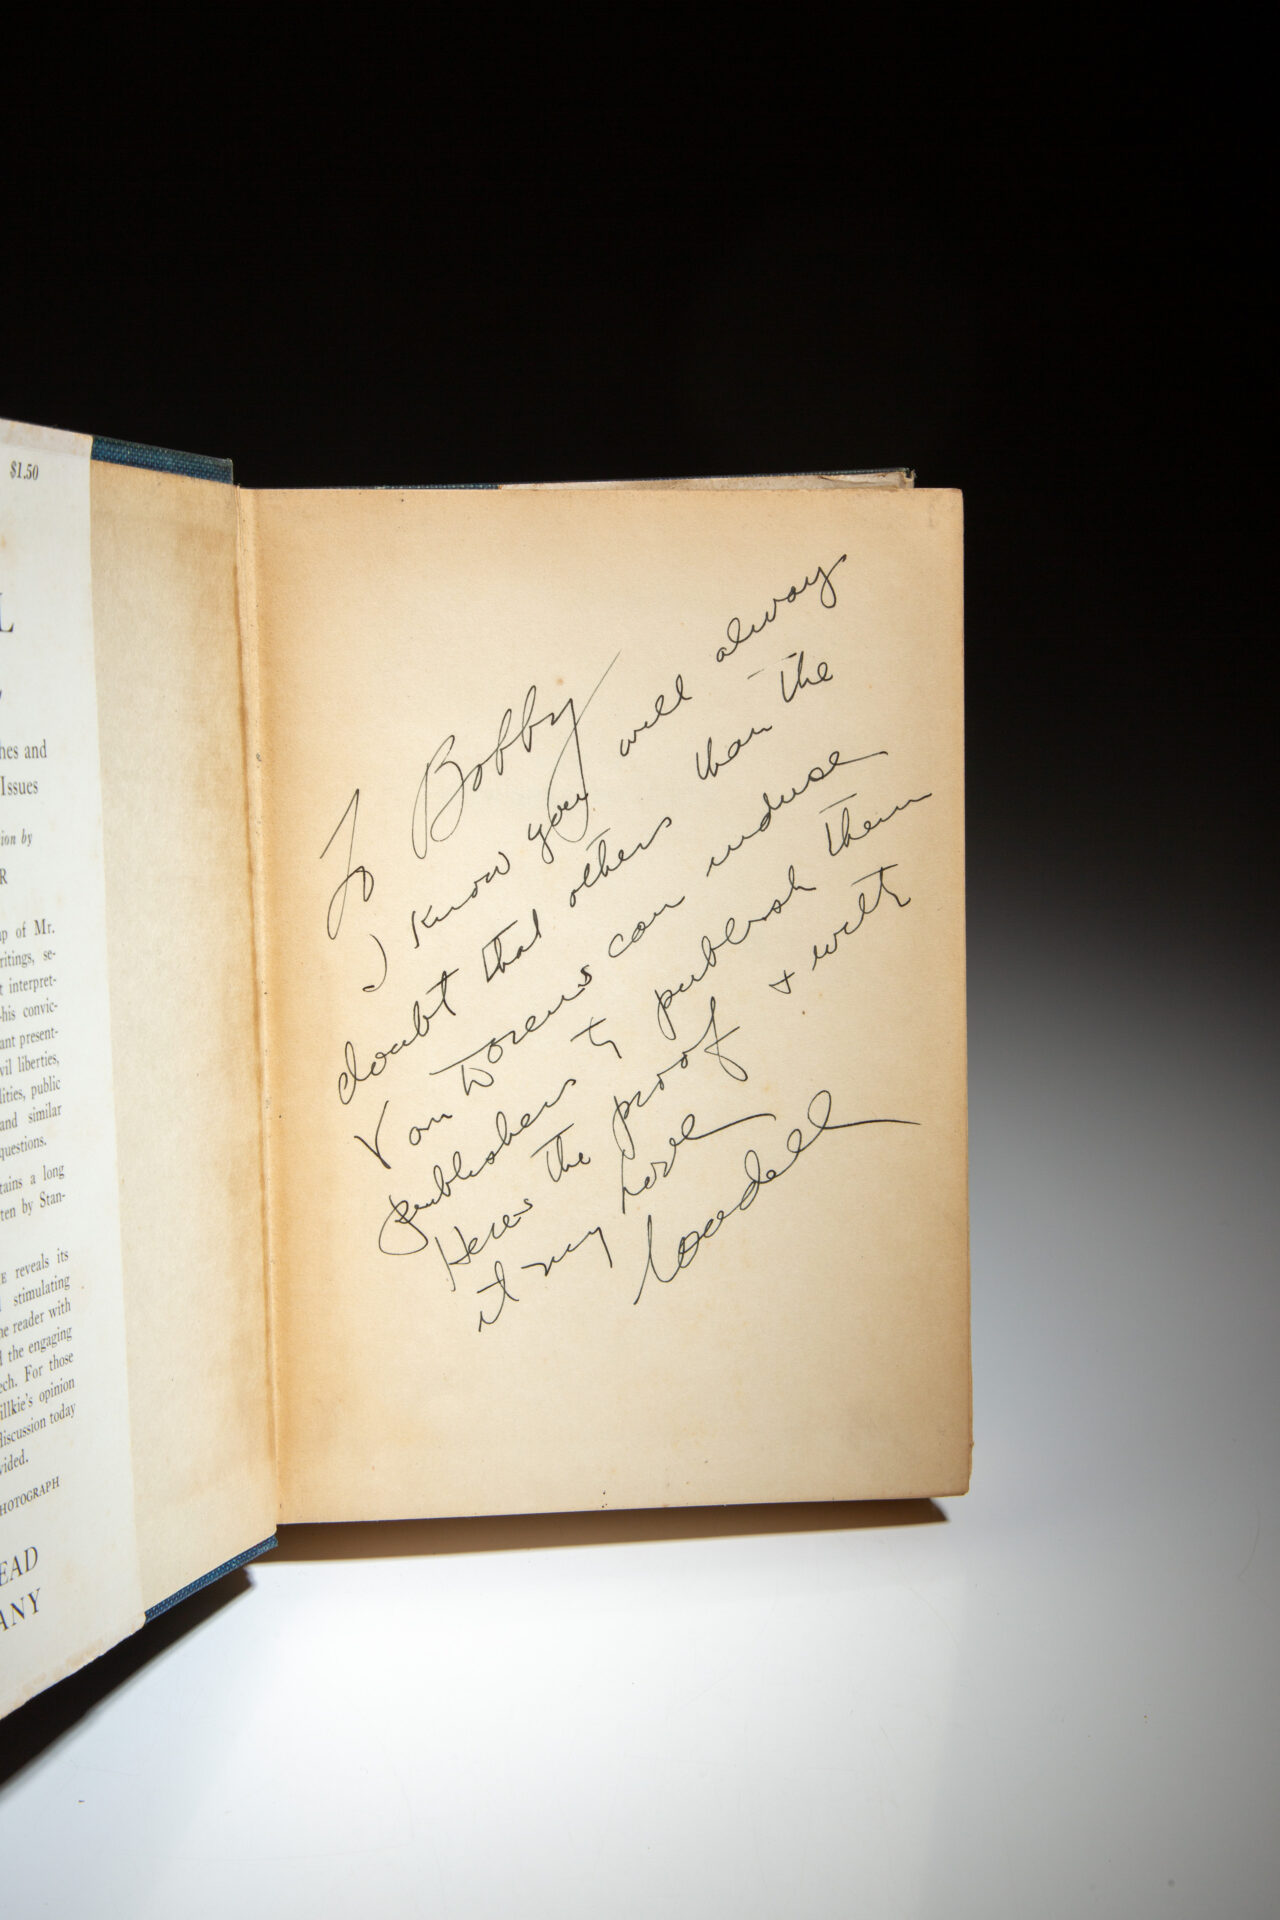 $1.50
L
hes and
Issues
ion by
R
p of Mr.
ritings, se-
t interpret-
his convic-
ant present-
vil liberties,
lities, public
and similar
questions.
tains a long
ten by Stan-
E reveals its
stimulating
he reader with
the engaging
ech. For those
illkie's opinion
discussion today
vided.
HOTOGRAPH
EAD
ANY
To Bobby
I know you will always
doubt that others than the
Van Dorens can induse
publishers to publish them
Heres the proof & with
it my love
Wendell